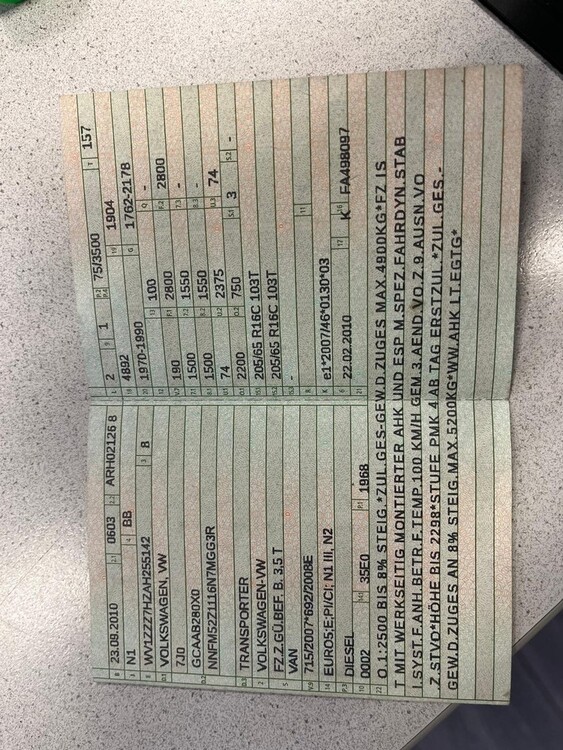 B 23.08.2010 2.1 0603 2.2 ARH02126 8
J N1 4 BB
E WV1ZZZ7HZAH255142 3 8
D.1 VOLKSWAGEN, VW
7J0
D.2 GCAAB280X0
NNFM5Z71116N7MGG3R
D.3 TRANSPORTER
2 VOLKSWAGEN-VW
5 FZ.Z.GÜ.BEF. B. 3,5 T
VAN
V.9 715/2007*692/2008E
14 EURO5;E;PI/CI; N1 III, N2
P.3 DIESEL
10 0002 14.1 35E0 P.1 1968
L 2 9 1 P.2 P.4 75/3500 T 157
18 4892 19 1904
20 1970-1990 G 1762-2178
12 - 13 100 Q -
V.7 190 F.1 2800 F.2 2800
7.1 1500 7.2 1550 7.3 -
8.1 1500 8.2 1550 8.3 -
U.1 74 U.2 2375 U.3 74
O.1 2200 O.2 750 S.1 3 S.2 -
15.1 205/65 R16C 103T
15.2 205/65 R16C 103T
15.3 -
R 11
K e1*2007/46*0130*03
6 22.02.2010 17 K 16 FA498097
21
22 O.1:2500 BIS 8% STEIG.*ZUL.GES-GEW.D.ZUGES MAX.4900KG*FZ IS
T MIT WERKSEITIG MONTIERTER AHK UND ESP M.SPEZ.FAHRDYN.STAB
I.SYST.F.ANH.BETR.F.TEMP.100 KM/H GEM 3.AEND.VO.Z.9.AUSN.VO
.Z.STVO*HÖHE BIS 2298*STUFE PMK 4 AB TAG ERSTZUL.*ZUL.GES.-
GEW.D.ZUGES AN 8% STEIG.MAX.5200KG*WW.AHK LT.EGTG*